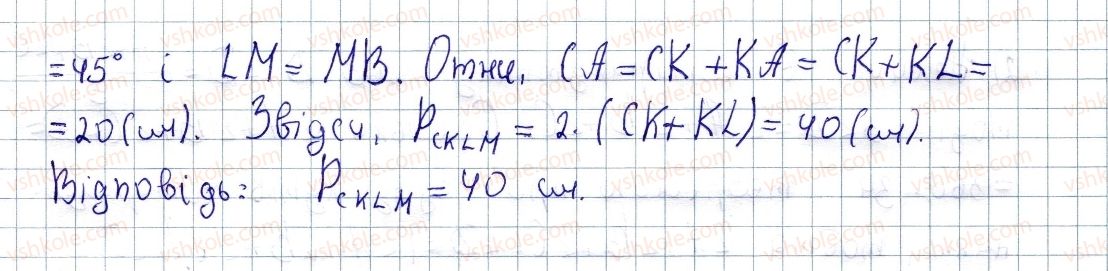 = 45° і LM = MB. Отже, CA = CK + KA = CK + KL =
= 20 (см). Звідси, P_CKLM = 2 · (CK + KL) = 40 (см).
Відповідь: P_CKLM = 40 см.